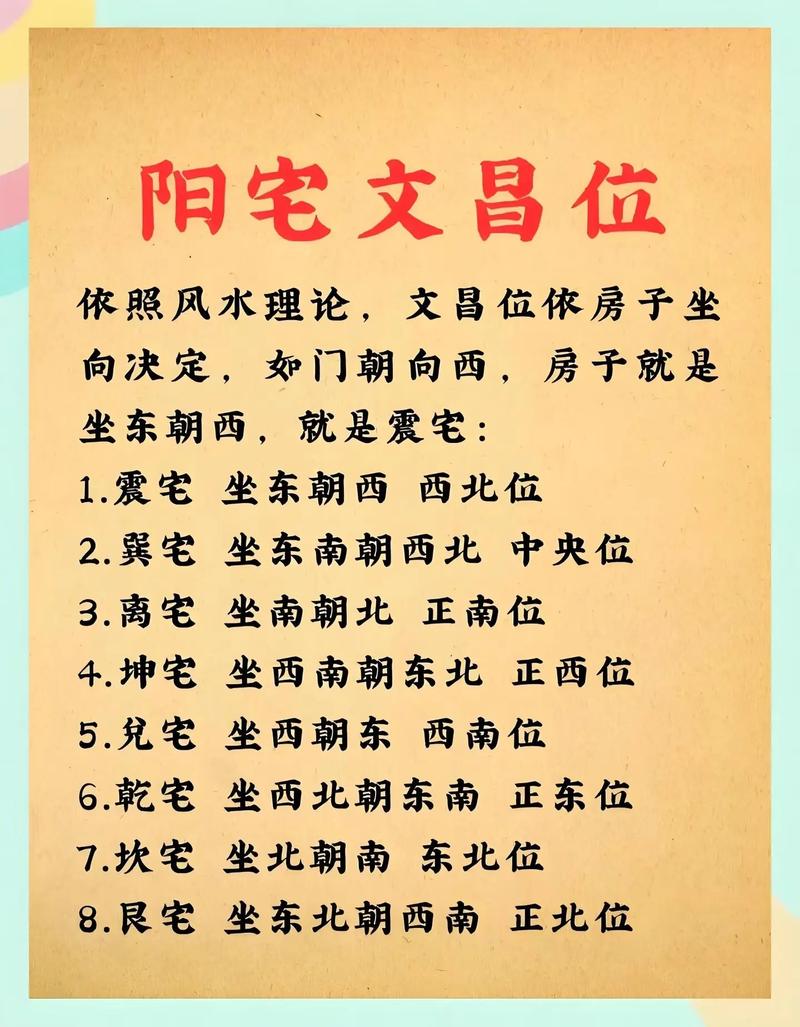 阳宅文昌位
依照风水理论，文昌位依房子坐
向决定，如门朝向西，房子就是
坐东朝西，就是震宅：
1.震宅 坐东朝西 西北位
2.巽宅 坐东南朝西北 中央位
3.离宅 坐南朝北 正南位
4.坤宅 坐西南朝东北 正西位
5.兑宅 坐西朝东 西南位
6.乾宅 坐西北朝东南 正东位
7.坎宅 坐北朝南 东北位
8.艮宅 坐东北朝西南 正北位